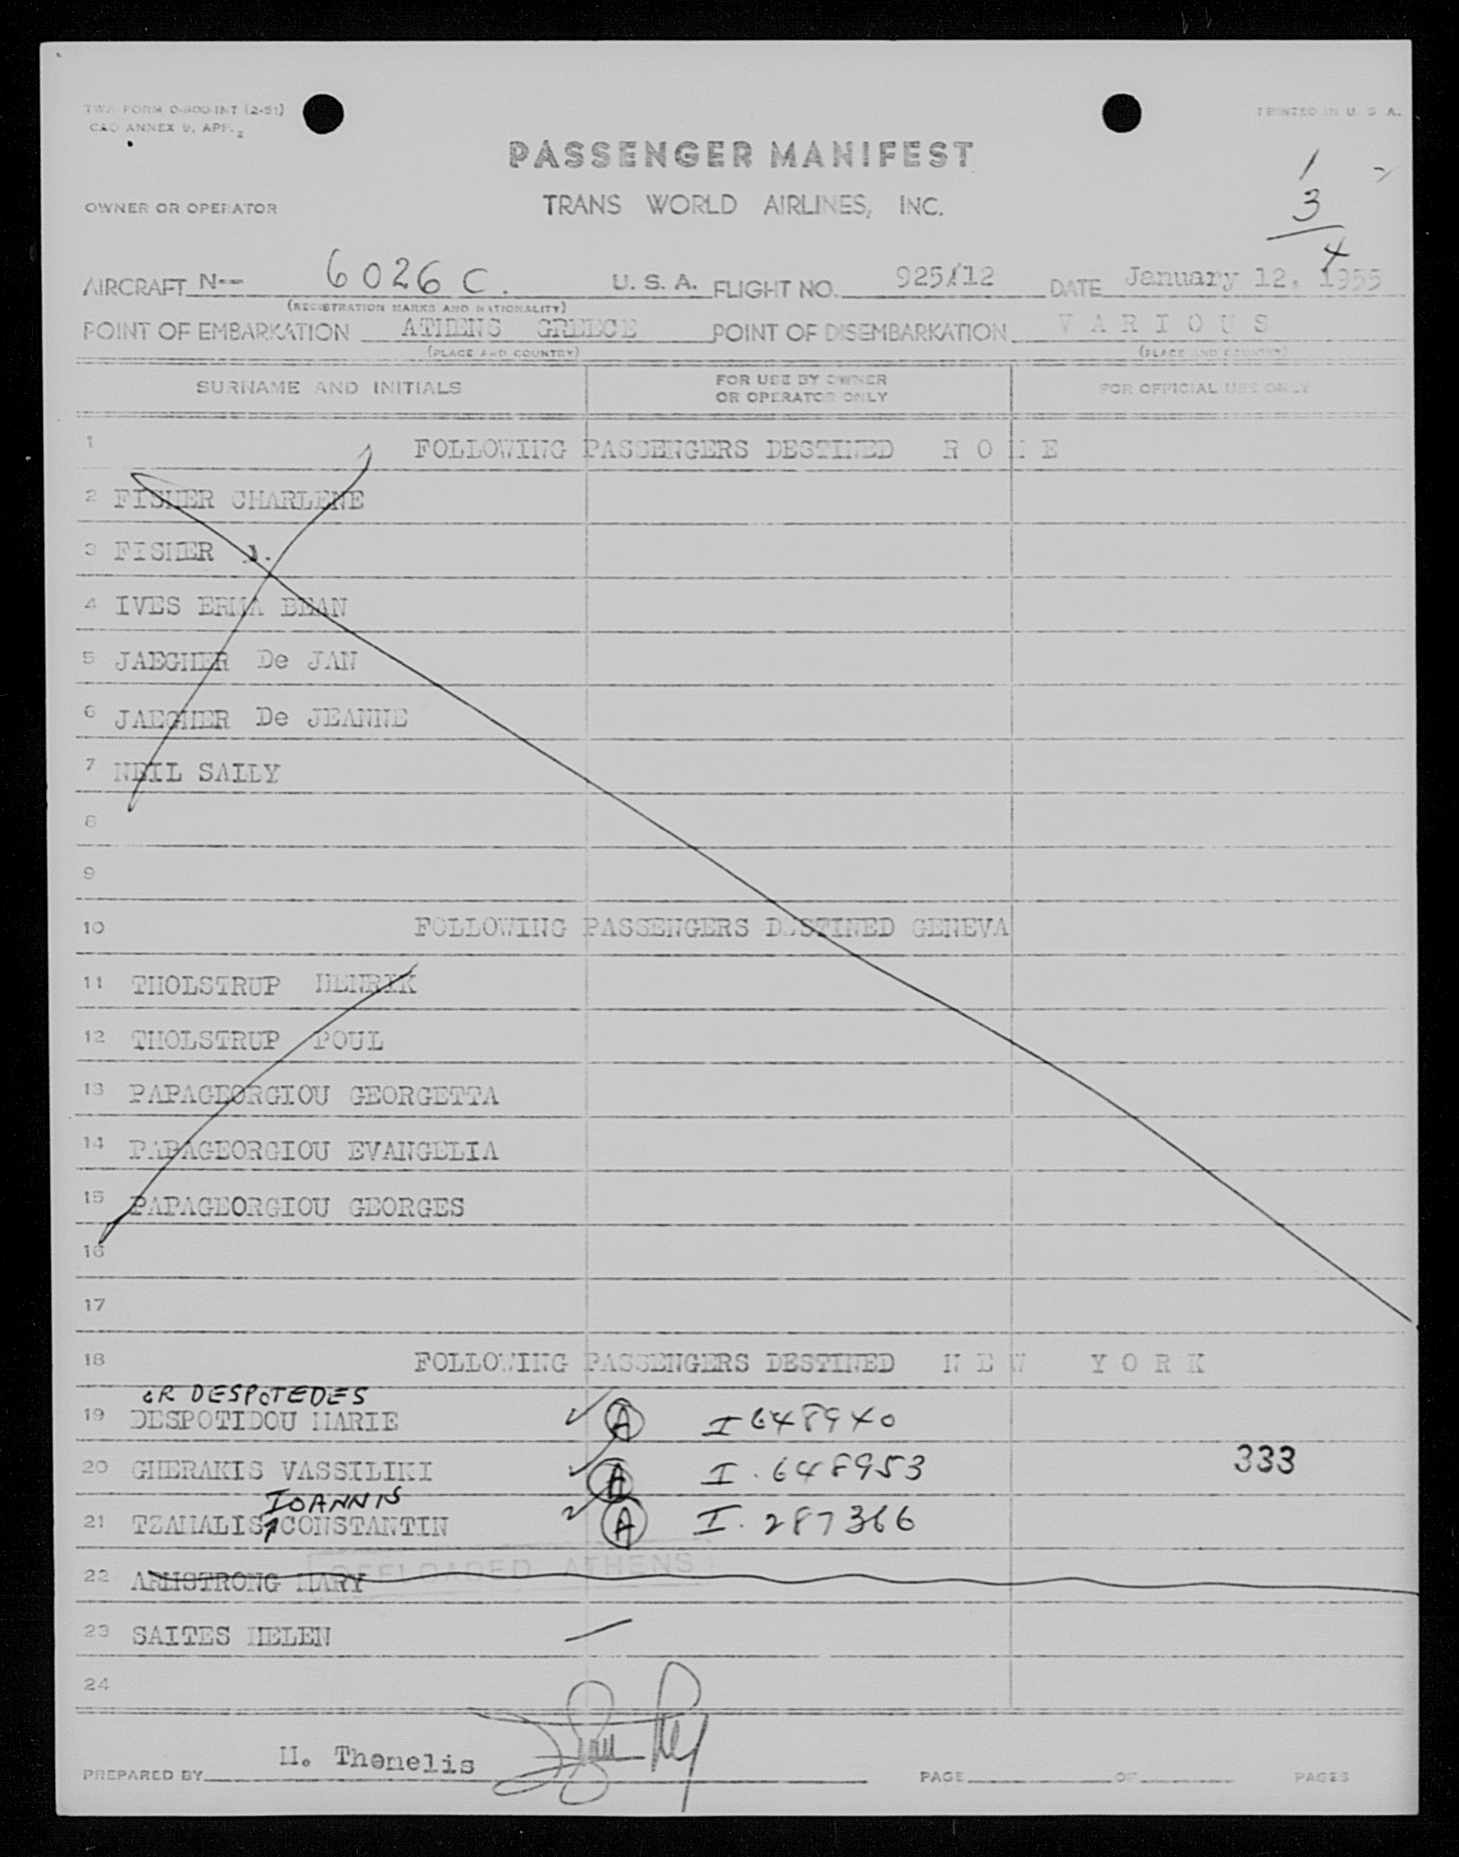 TWA FORM O-800-INT (2-51)
PRINTED IN U. S. A.
CAO ANNEX 9, APP. 2
PASSENGER MANIFEST
1
OWNER OR OPERATOR
TRANS WORLD AIRLINES, INC.
3
4
AIRCRAFT N-- 6026C. U. S. A. FLIGHT NO. 925/12 DATE January 12, 1955
(REGISTRATION MARKS AND NATIONALITY)
POINT OF EMBARKATION ATHENS GREECE POINT OF DISEMBARKATION V A R I O U S
(PLACE AND COUNTRY) (PLACE AND COUNTRY)
SURNAME AND INITIALS FOR USE BY OWNER OR OPERATOR ONLY FOR OFFICIAL USE ONLY
1 FOLLOWING PASSENGERS DESTINED R O M E
2 FISHER CHARLENE
3 FISHER J.
4 IVES ERMA BEAN
5 JAEGHER De JAN
6 JAEGHER De JEANNE
7 NEIL SALLY
8
9
10 FOLLOWING PASSENGERS DESTINED GENEVA
11 THOLSTRUP HENRIK
12 THOLSTRUP POUL
13 PAPAGEORGIOU GEORGETTA
14 PAPAGEORGIOU EVANGELIA
15 PAPAGEORGIOU GEORGES
16
17
18 FOLLOWING PASSENGERS DESTINED N E W Y O R K
OR DESPOTEDES
19 DESPOTIDOU MARIE A I 648940
20 GHERAKIS VASSILIKI A I. 648953 333
IOANNIS
21 TZAMALIS CONSTANTIN A I. 287366
OFFLOADED ATHENS
22 ARMSTRONG MARY
23 SAITES HELEN
24
PREPARED BY H. Thomelis PAGE OF PAGES